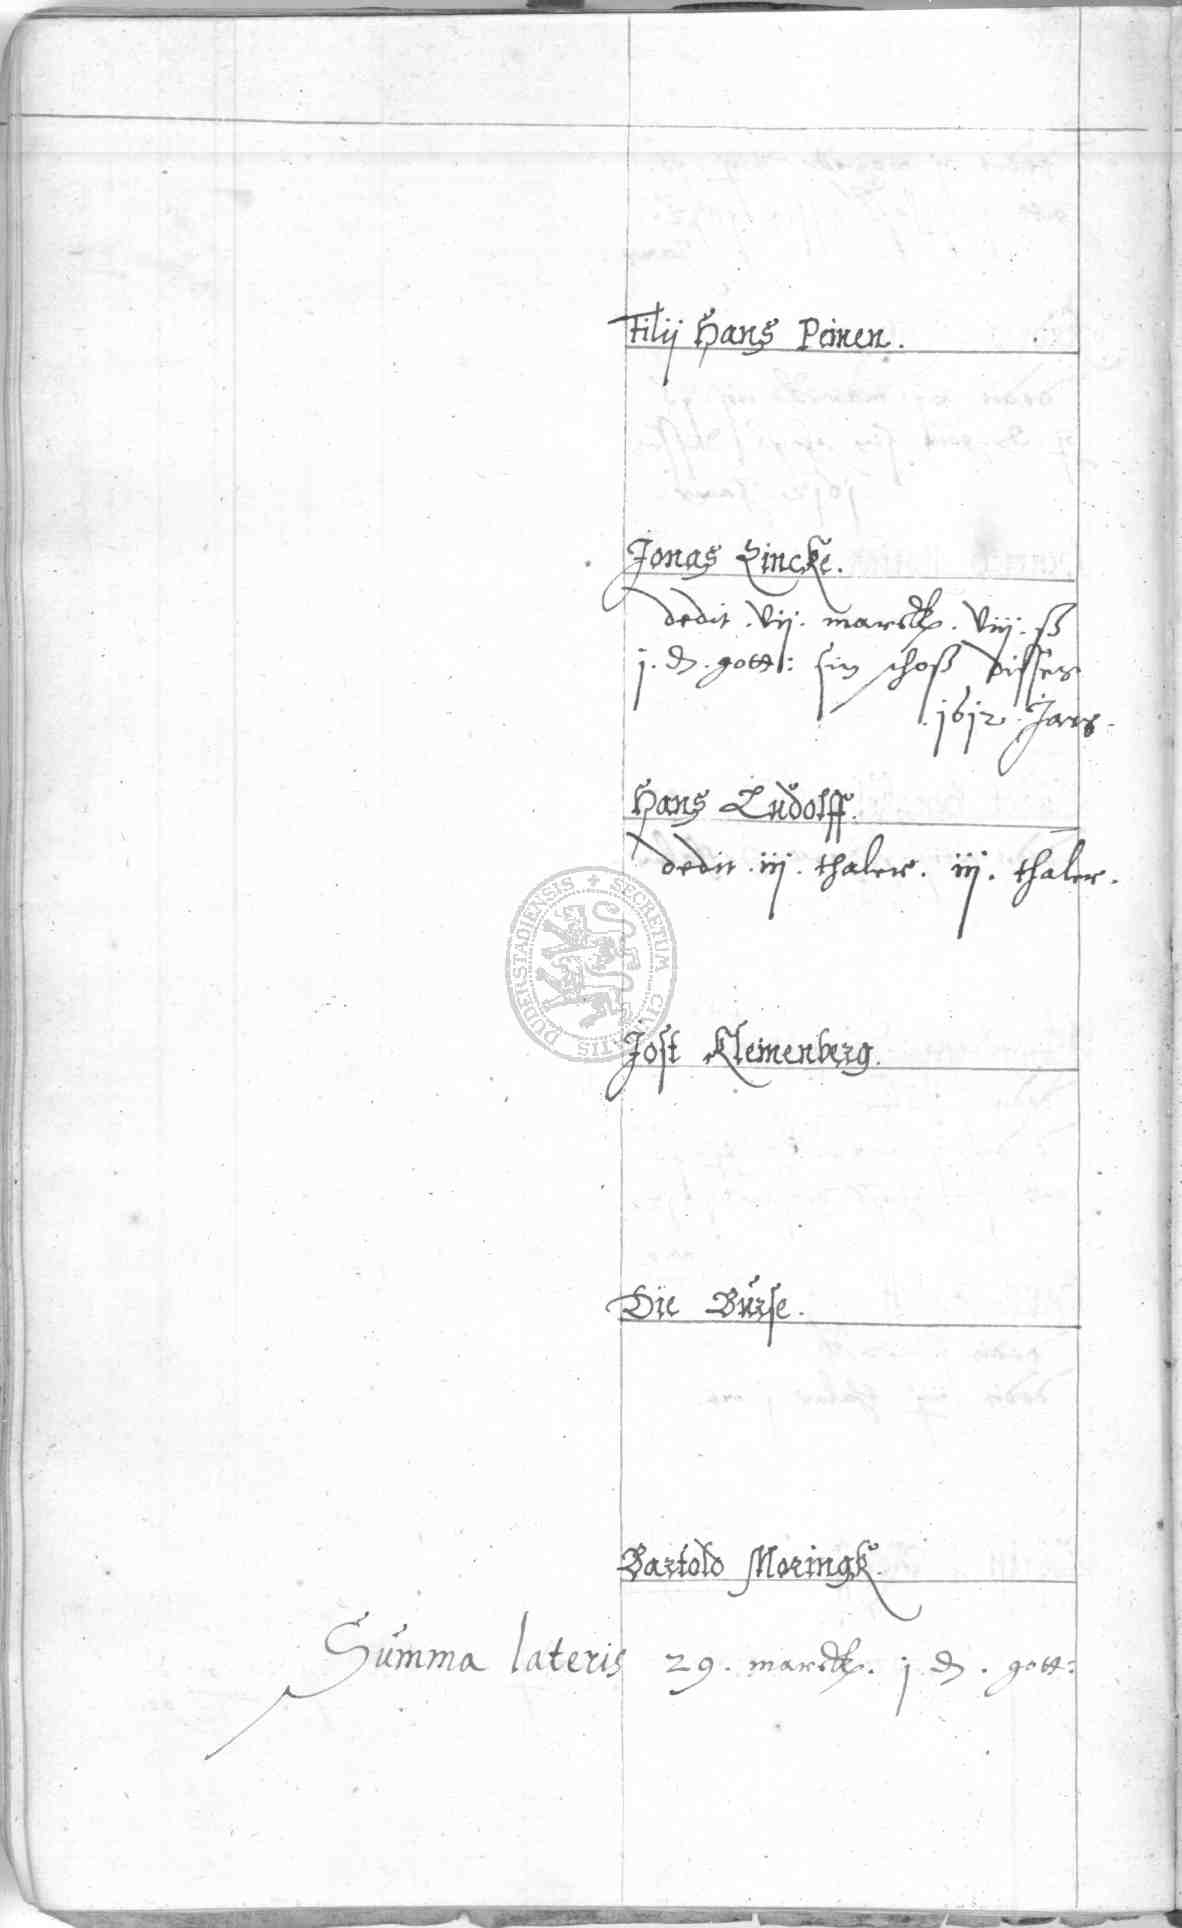 Filij Hans Peinen.
Jonas Lincke.
dedit . vij . marck . viij . ß
j . ₰ . gott: sin schoß disses
. 1612 . Jars .
Hans Ludolff.
dedit . iij . thaler . iij . thaler .
SECRETUM CIVITATIS DUDERSTADIENSIS
Jost Kleinenberg.
Die Bürse.
Bartold Moringk.
Summa lateris 29 . marck . j . ₰ . gott: